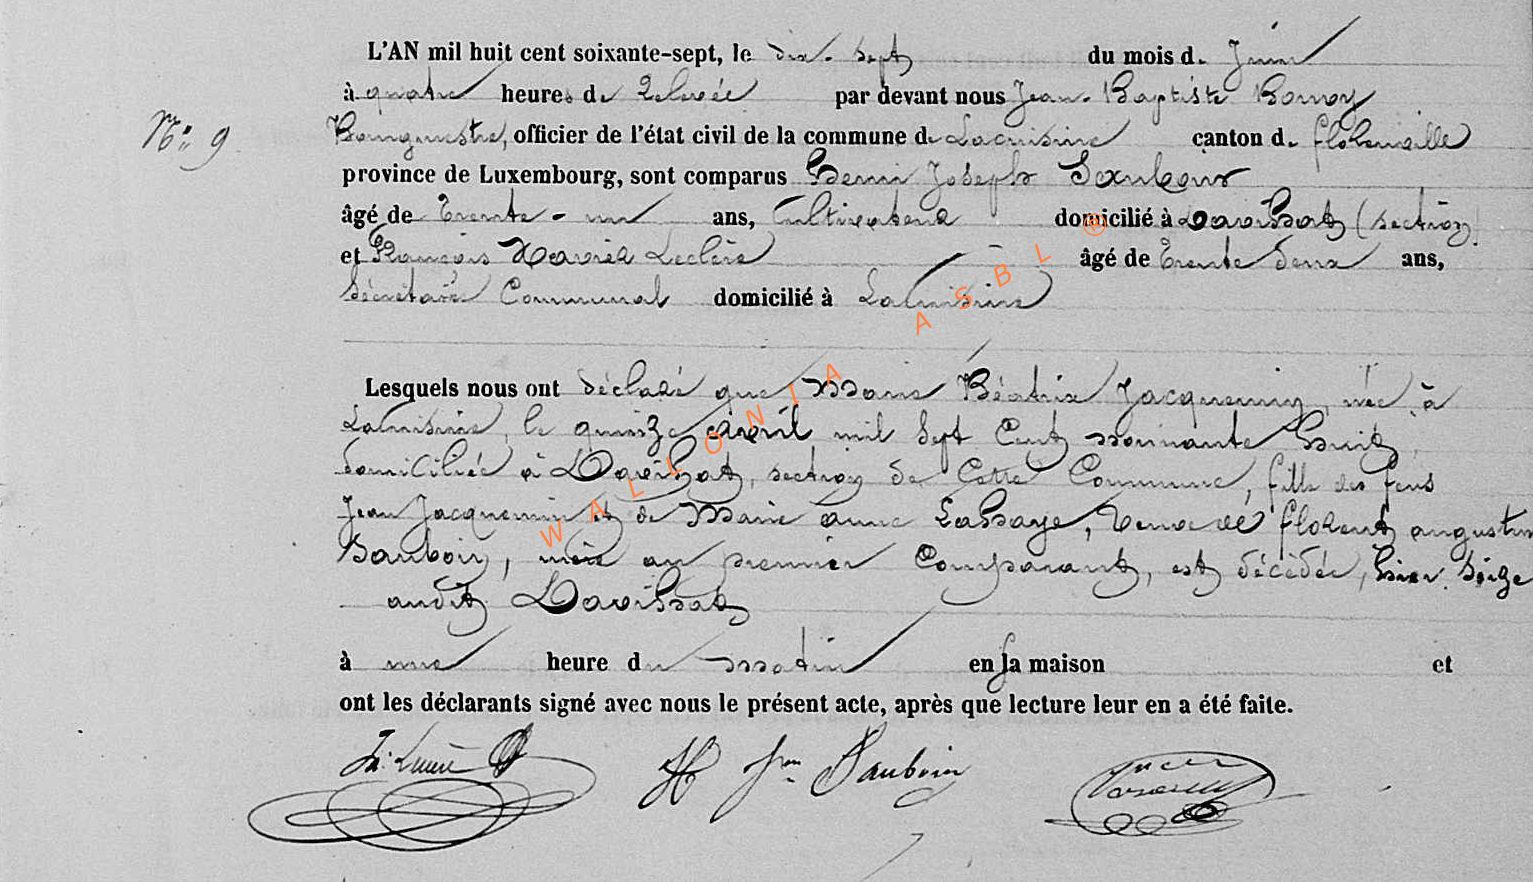 L'AN mil huit cent soixante-sept, le dix-sept du mois de Juin
à quatre heures de Relevée par devant nous Jean-Baptiste
N° 9 Bourgmestre, officier de l'état civil de la commune de Lacuisine canton de florenville
province de Luxembourg, sont comparus Henri Joseph Sauboin
âgé de Trente-un ans, Cultivateur domicilié à (section)
et François Xavier Leclère âgé de Trente deux ans,
Secrétaire Communal domicilié à Lacuisine
Lesquels nous ont déclaré que Marie Béatrix Jacquemin, née à
Lacuisine, le quinze avril mil Sept Cent nonnante huit,
domiciliée à section de Cette Commune, fille des feus
Jean Jacquemin et de Marie anne veuve de florent augustin
Sauboin, mère au premier Comparant, est décédée, hier seize
audit
à une heure du matin en sa maison et
ont les déclarants signé avec nous le présent acte, après que lecture leur en a été faite.
H Sauboin
WALLONIA ASBL ®